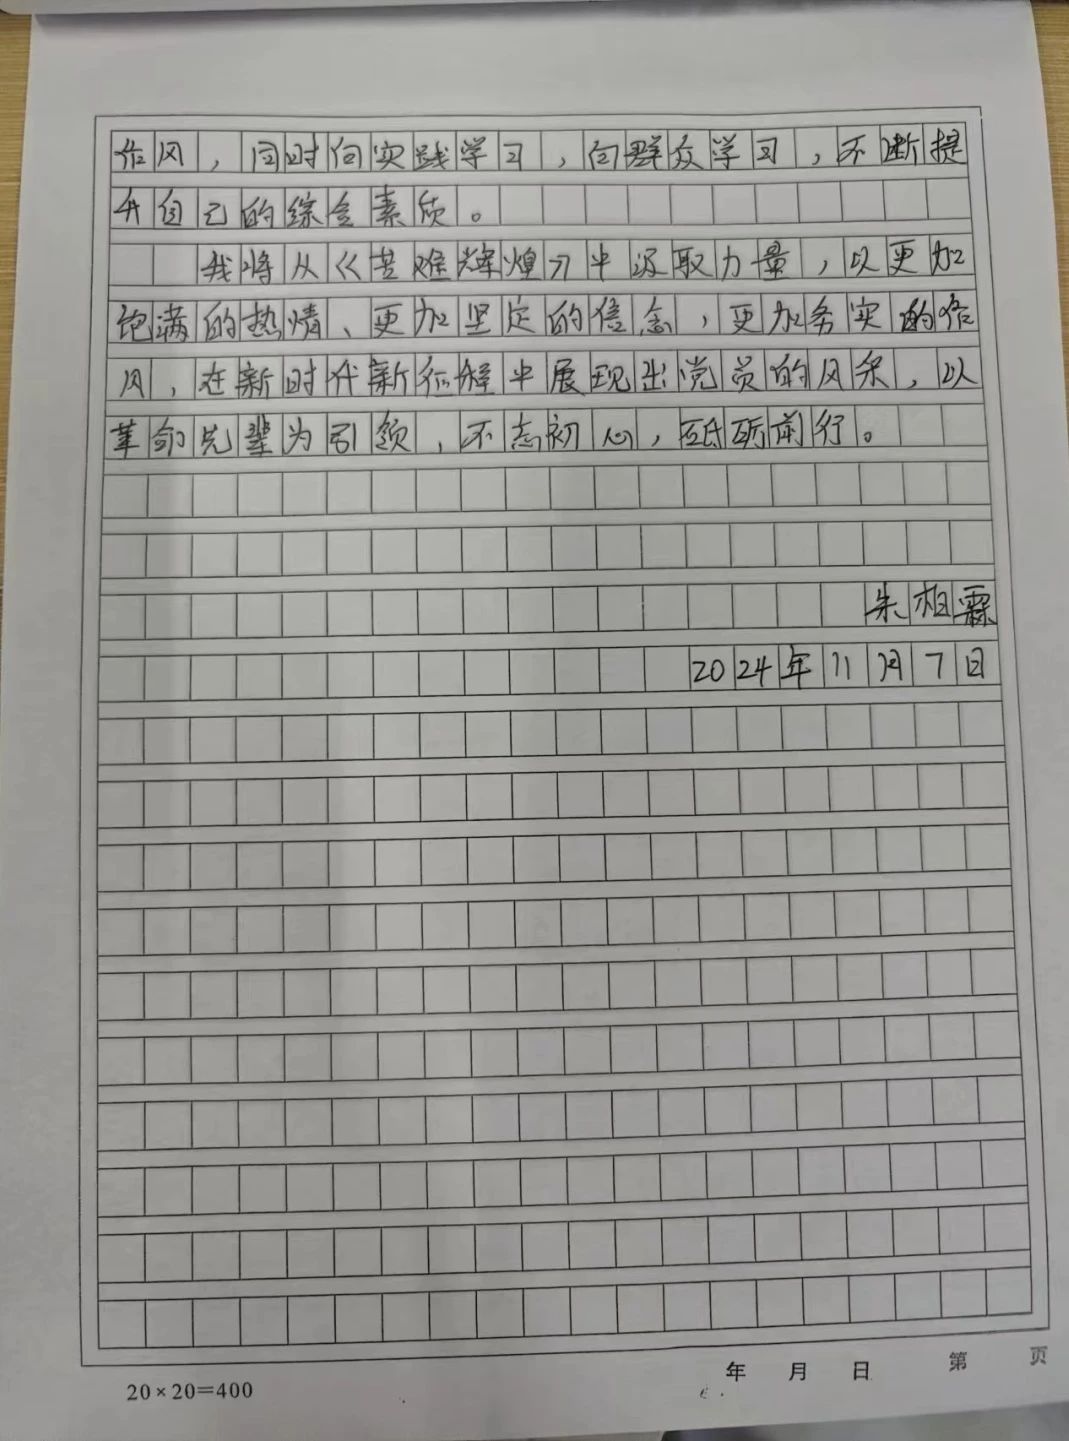 作风，同时向实践学习，向群众学习，不断提
升自己的综合素质。
我将从《苦难辉煌》中汲取力量，以更加
饱满的热情、更加坚定的信念，更加务实的作
风，在新时代新征程中展现出党员的风采，以
革命先辈为引领，不忘初心，砥砺前行。
朱相霖
2024年11月7日
20×20=400
年 月 日 第 页